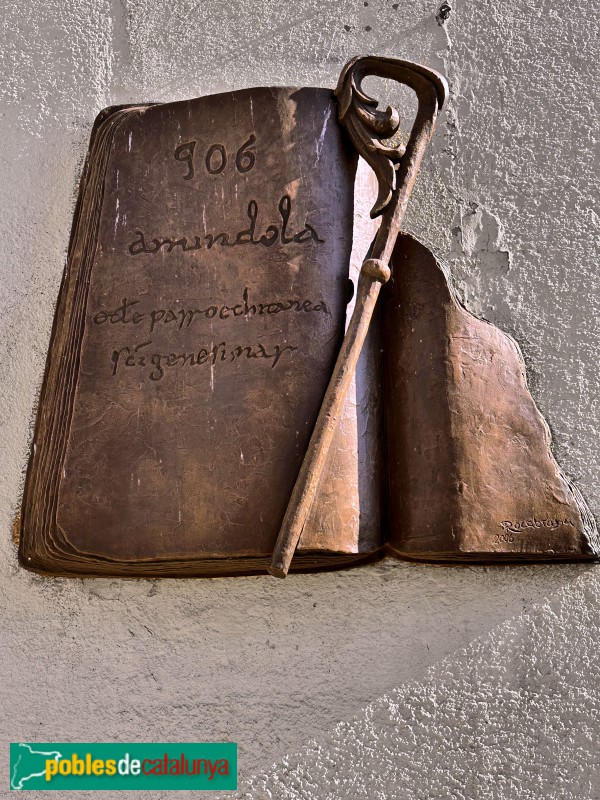 906
amindola
ode parrochianea
sci genesi mar
Rocabruna
2006
poblesdecatalunya